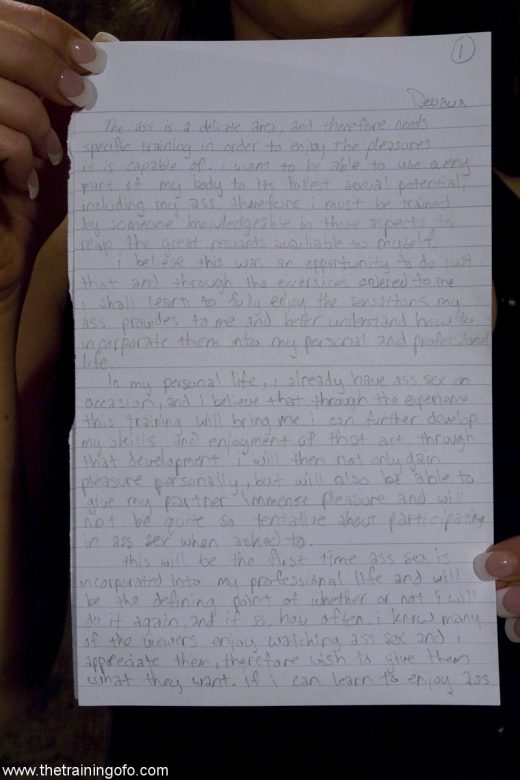 1
Devaun
The ass is a delicate area, and therefore needs
specific training in order to enjoy the pleasures
it is capable of. i want to be able to use every
part of my body to its fullest sexual potential,
including my ass. therefore i must be trained
by someone knowledgeable in those aspects to
reap the great rewards available to myself.
i believe this was an opportunity to do just
that and through the excersices ordered to me
i shall learn to fully enjoy the sensations my
ass provides to me and better understand how to
incorporate them into my personal and professional
life.
In my personal life, i already have ass sex on
occasion, and i believe that through the experience
this training will bring me i can further develop
my skills and enjoyment of that act. through
that development i will then not only gain
pleasure personally, but will also be able to
give my partner immense pleasure and will
not be quite so tentative about participating
in ass sex when asked to.
this will be the first time ass sex is
incorporated into my professional life and will
be the defining point of whether or not i will
do it again, and if so, how often. i know many
of the viewers enjoy watching ass sex and i
appreciate them, therefore wish to give them
what they want. if i can learn to enjoy ass
www.thetrainingofo.com